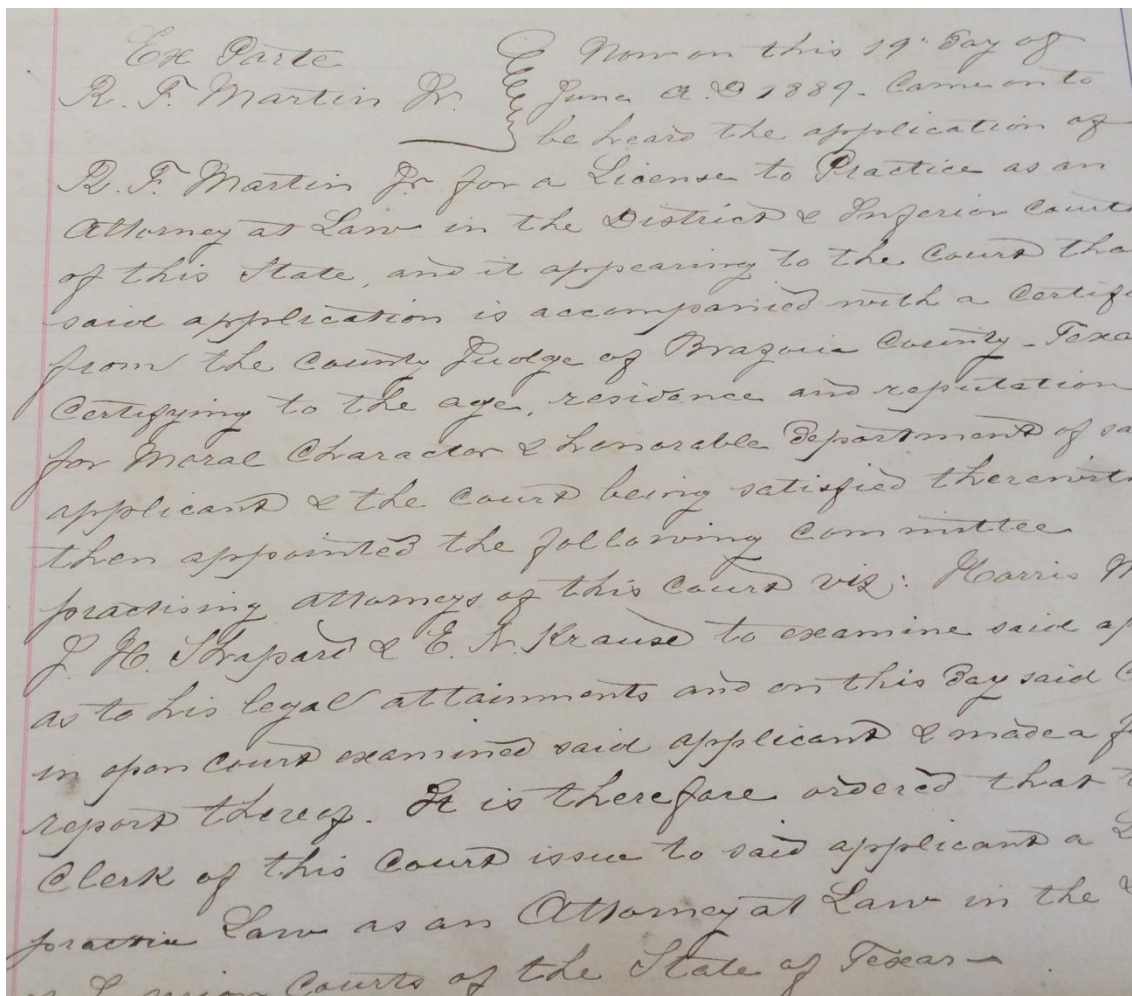 Ex Parte
R. F. Martin Jr.
Now on this 19" Day of
June A.D 1889. Came on to
be heard the application of
R. F. Martin Jr for a License to Practice as an
Attorney at Law in the District & Inferior Courts
of this State, and it appearing to the Court tha
said application is accompanied with a Certif
from the County Judge of Brazoria County - Texa
Certifying to the age, residence and reputation
for Moral Character & honorable Department of sa
applicant & the Court being satisfied therewit
then appointed the following Committee
practising attorneys of this Court viz: Harris M
J. H. Shapard & E. N. Krause to examine said ap
as to his legal attainments and on this Day said C
in open Court examined said applicant & made a f
report thereof. It is therefore ordered that t
Clerk of this Court issue to said applicant a L
practice Law as an Attorney at Law in the
Courts of the State of Texas -